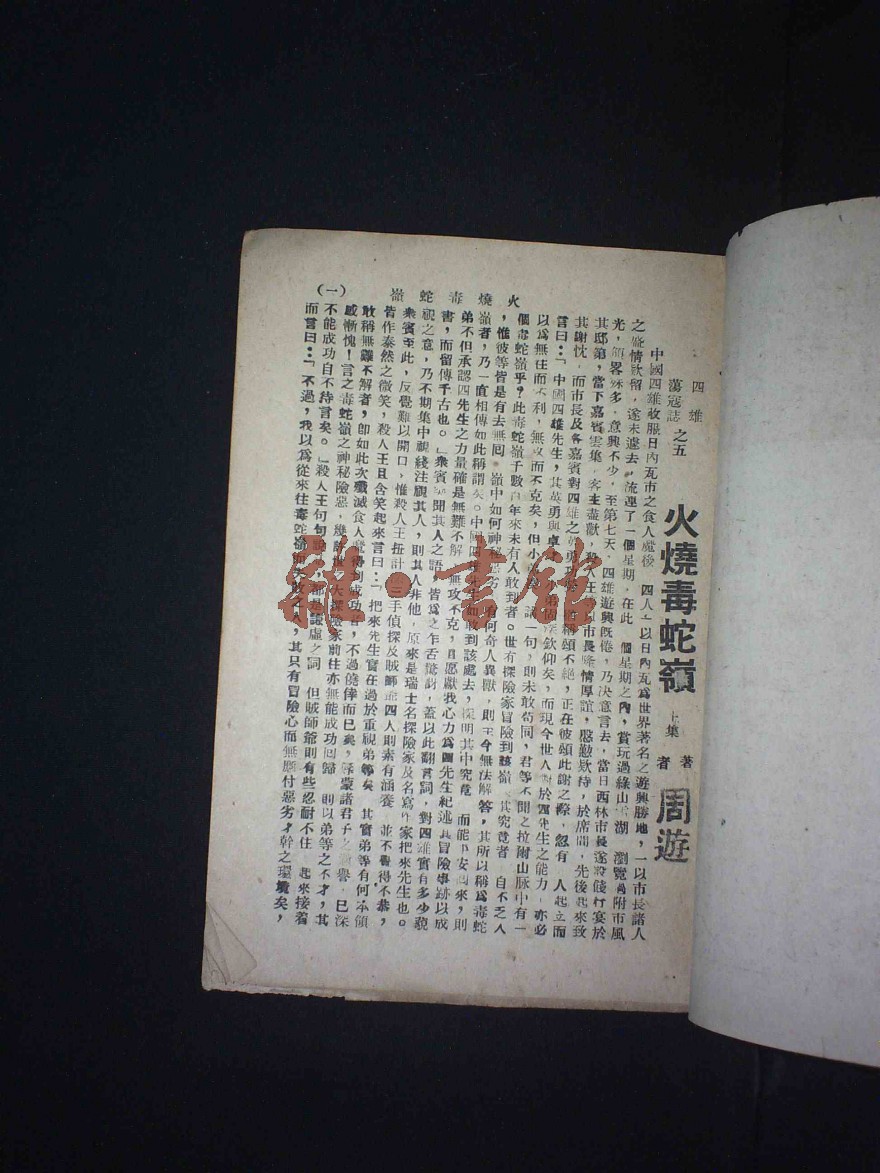 四雄
蕩寇誌 之五
火燒毒蛇嶺 上集
著者 周遊
中國四雄收服日內瓦市之食人魔後 四人一以日內瓦為世界著名之遊興勝地，一以市長諸人
之盛情欵留，遂未遽去。流連了一個星期，在此一個星期之內，賞玩過綠山 湖 瀏覽過附市風
光，領畧殊多，意興不少，至第七天，四雄遊興既倦，乃決意言去，當日西林市長遂設餞行宴於
其邸第，當下嘉賓雲集，客主盡歡，殺人王 市長隆情厚誼，慇懃欵待，於席間，先後起來致
其謝忱，而市長及各嘉賓對四雄之英勇 稱頌不絕，正在彼頌此謝之際，忽有一人起立而
言曰：「中國四雄先生，其英勇與卓 欽仰矣，而現今世人對於四先生之能力，亦必
以為無往而不利，無攻而不克矣，但小 講一句，則未敢苟同，君等不聞之拉附山脈中有一
個毒蛇嶺乎？此毒蛇嶺千數百年來未有人敢到者。世有探險家冒險到該嶺 其究竟者 自不乏人
，惟彼等皆是有去無囘。嶺中如何神秘惡劣 有何奇人異獸，則至今無法解答，其所以稱為毒蛇
嶺者，乃一直相傳如此稱謂矣。中國四雄先生如敢到該處去，探明其中究竟 而能平安囘來，則
弟不但承認四先生之力量確是無難不解 無攻不克，且愿獻我心力為四先生紀述其冒險事跡以成
書，而留傳千古也。」衆賓 聞其人之語，皆為之乍舌驚訝，蓋以此翻言詞，對四雄實有多少藐
視之意，乃不期集中視綫注視其人，則其人非他，原來是瑞士名探險家及名寫作家把來先生也。
衆賓至此，反覺難以開口，惟殺人王扭計 三手偵探及賊師爺四人則素有涵養 並不覺得不恭，
皆作泰然之微笑，殺人王且含笑起來言曰：「把來先生實在過於重視弟等矣 其實弟等有何本領
敢稱無難不解者，卽如此次殲滅食人魔得到成功者，不過僥倖而已矣，辱蒙諸君子之 譽，已深
感慚愧！言之毒蛇嶺之神秘險惡，幾許世之大探險家前往亦無能成功囘歸 則以弟等之不才，其
不能成功自不待言矣。」殺人王句句 都是謙虛之詞 但賊師爺則有些忍耐不住 起來接着
而言曰：「不過，我以為從來往毒蛇嶺而失敗之人，其只有冒險心而無應付惡劣才幹之環境矣，
火燒毒蛇嶺
（一）
雒·書館